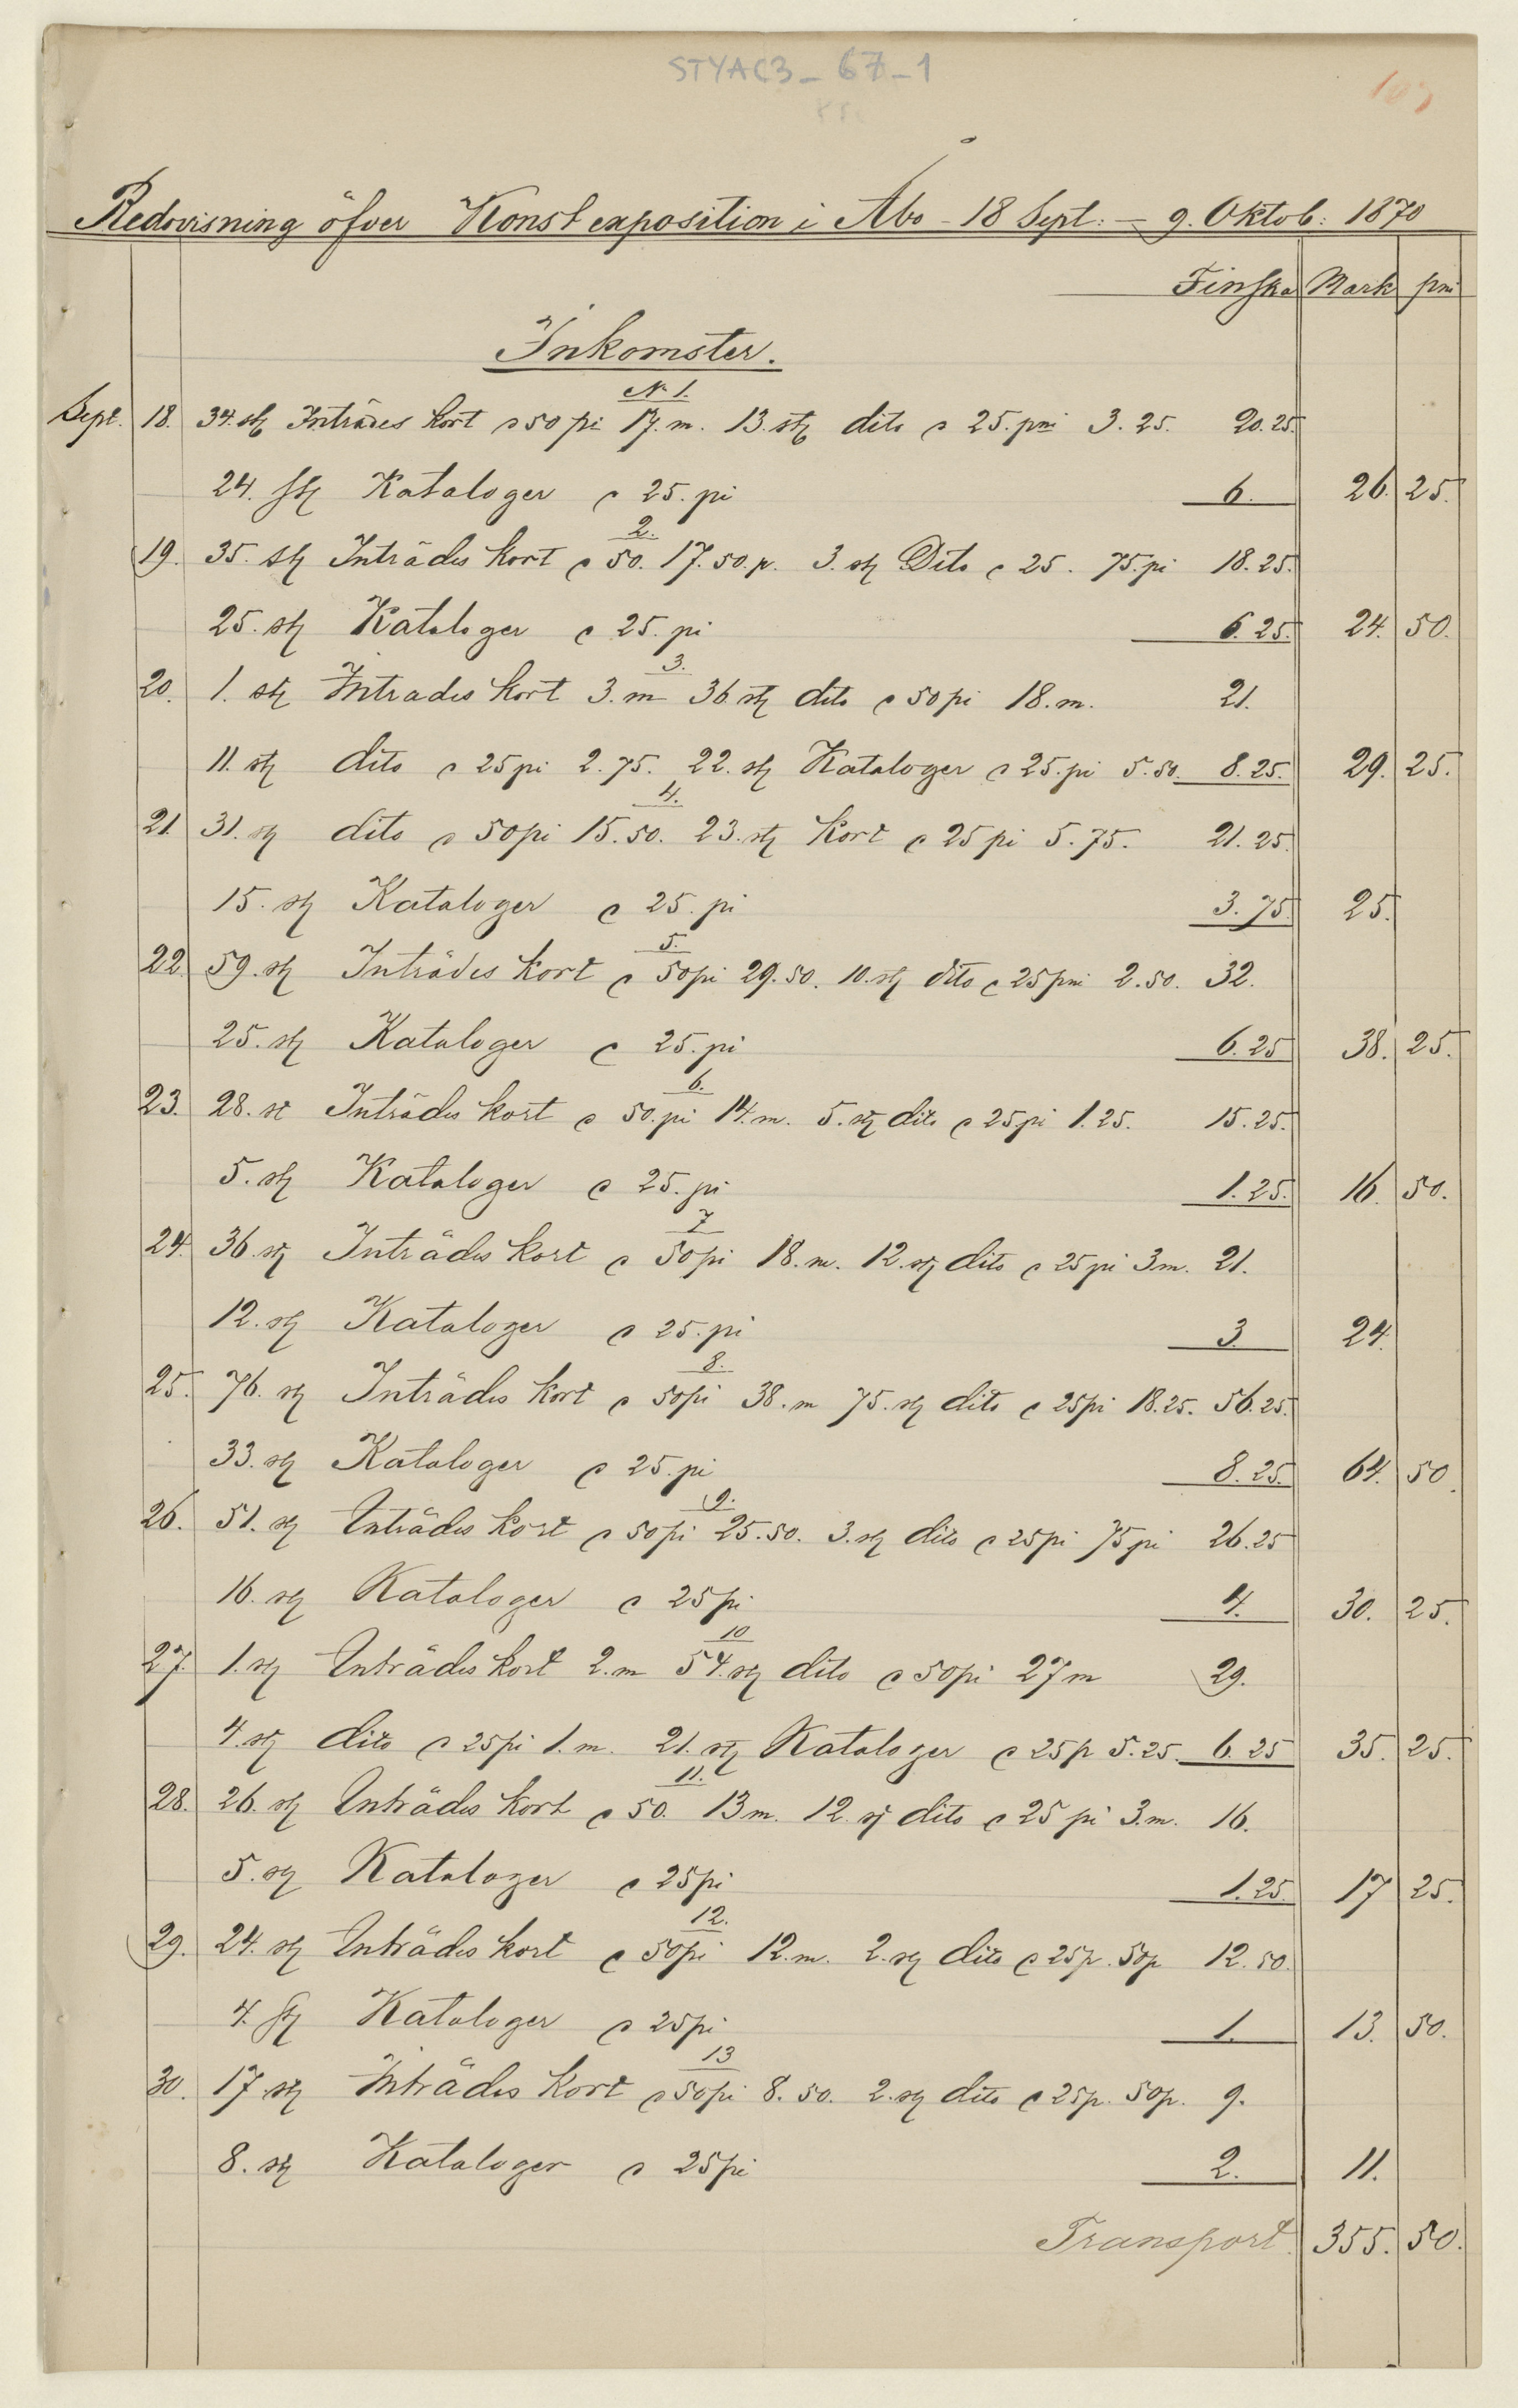 STYAC3_67_1
Redovisning öfver Konstexposition i Åbo - 18 Sept: - 9. Oktob: 1870
Finska Mark pni
Inkomster.
N. 1.
Sept. 18. 34. stz Inträdes kort a 50 pi 17. m. 13. stz dito a 25. pni 3. 25. 20. 25.
24. stz Kataloger a 25. pi 6. 26. 25.
2.
19. 35. stz Inträdes kort a 50. 17. 50. p. 3. stz Dito a 25. 75. pi 18. 25.
25. stz Kataloger a 25. pi 6. 25. 24. 50.
3.
20. 1. stz Intrades kort 3. m 36 stz dito a 50 pi 18. m. 21.
11. stz dito a 25 pi 2. 75. 22. stz Kataloger a 25. pi 5. 50. 8. 25. 29. 25.
4.
21. 31. stz dito a 50 pi 15. 50. 23. stz Kort a 25 pi 5. 75. 21. 25.
15. stz Kataloger a 25. pi 3. 75. 25.
5.
22. 59. stz Inträdes kort a 50 pi 29. 50. 10. stz dito a 25 pni 2. 50. 32.
25. stz Kataloger a 25. pi 6. 25 38. 25.
6.
23. 28. st Inträdes kort a 50. pi 14. m. 5. stz dito a 25 pi 1. 25. 15. 25.
5. stz Kataloger a 25. pi 1. 25. 16. 50.
7
24. 36. stz Inträdes kort a 50 pi 18. m. 12. stz dito a 25 pi 3 m. 21.
12. stz Kataloger a 25. pi 3. 24.
8.
25. 76. stz Inträdes kort a 50 pi 38. m 75. stz dito a 25 pi 18. 25. 56. 25.
33. stz Kataloger a 25. pi 8. 25. 64. 50.
9.
26. 51. stz Inträdes kort a 50 pi 25. 50. 3. stz dito a 25 pi 75 pi 26. 25
16. stz Kataloger a 25 pi 4. 30. 25.
10
27. 1. stz Inträdes kort 2. m 54. stz dito a 50 pi 27 m 29.
4. stz dito a 25 pi 1. m. 21. stz Kataloger a 25 p 5. 25. 6. 25 35. 25.
11.
28. 26. stz Inträdes kort a 50. 13 m. 12. stz dito a 25 pi 3. m. 16.
5. stz Kataloger a 25 pi 1. 25. 17 25.
12.
29. 24. stz Inträdes kort a 50 pi 12. m. 2. stz dito a 25 p. 50 p 12. 50.
4. stz Kataloger a 25 pi 1. 13. 50.
13
30. 17 stz Inträdes kort a 50 pi 8. 50. 2. stz dito a 25 p. 50 p. 9.
8. stz Kataloger a 25 pi 2. 11.
Transport 355. 50.